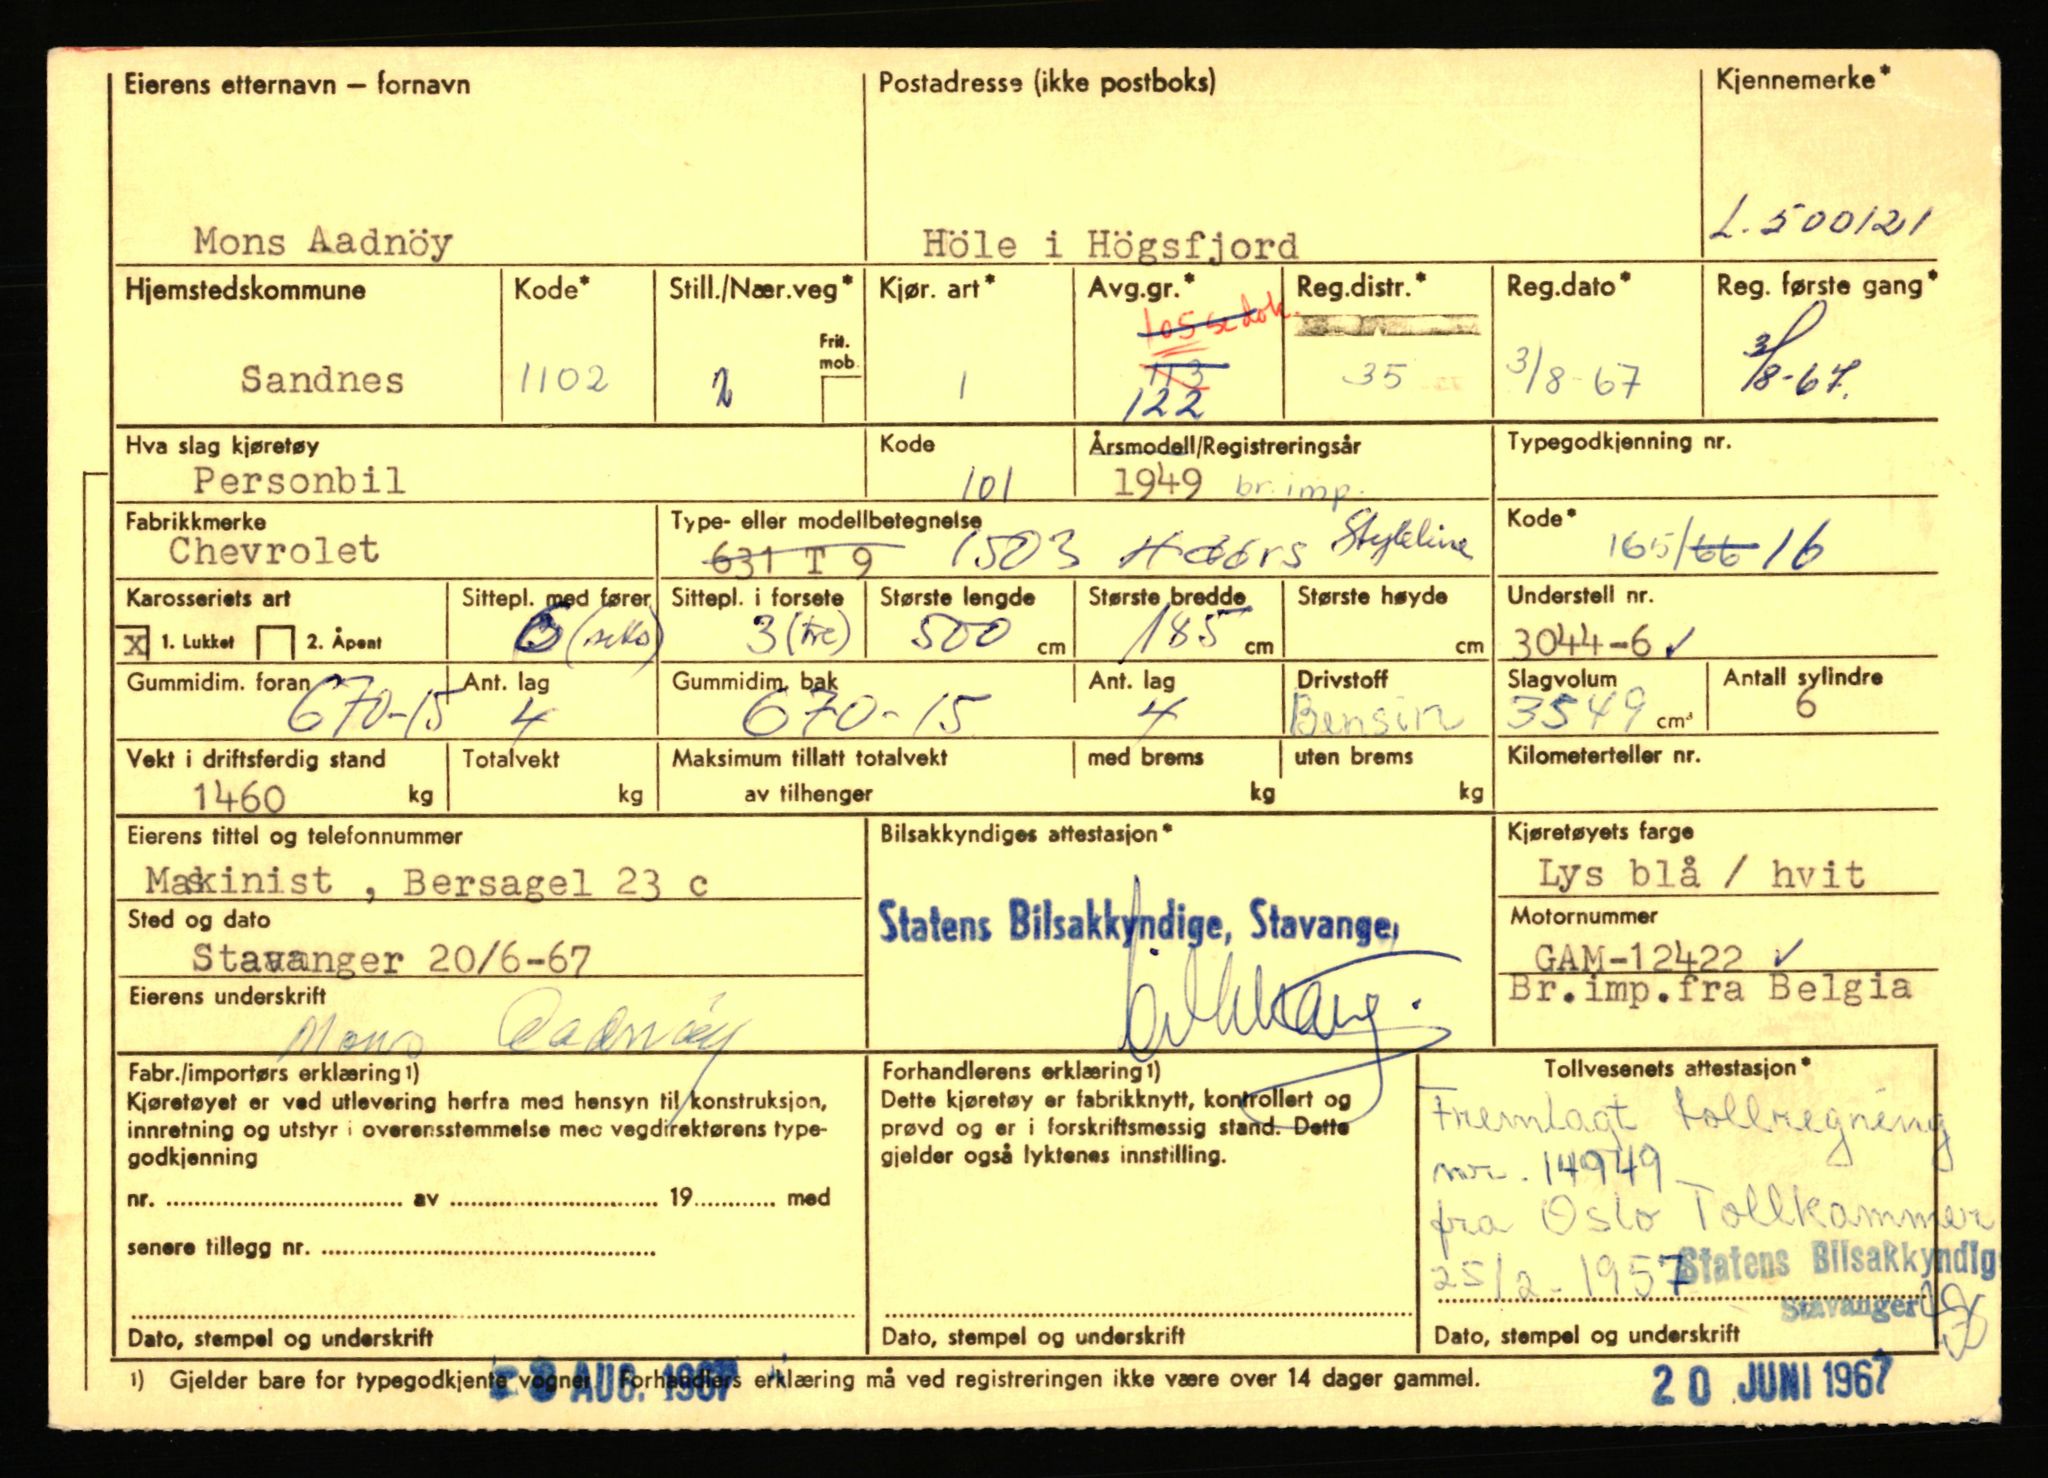 Eierens etternavn – fornavn Postadresse (ikke postboks) Kjennemerke*
Mons Aadnöy Höle i Högsfjord L. 500121
Hjemstedskommune Kode* Still./Nær.veg* Kjør. art* Avg.gr.* Reg.distr.* Reg.dato* Reg. første gang*
105 se dok.
Frit.
mob.
113
Sandnes 1102 2 1 122 35 3/8-67 3/8-67.
Hva slag kjøretøy Kode Årsmodell/Registreringsår Typegodkjenning nr.
Personbil 101 1949 br. imp.
Fabrikkmerke Type- eller modellbetegnelse Kode*
Chevrolet 631 T 9 1503 Styleline 165/66 16
Karosseriets art Sittepl. med fører Sittepl. i forsete Største lengde Største bredde Største høyde Understell nr.
X 1. Lukket 2. Åpent 6 (seks) 3 (tre) 500 cm 185 cm cm 3044-6 ✓
Gummidim. foran Ant. lag Gummidim. bak Ant. lag Drivstoff Slagvolum Antall sylindre
670-15 4 670-15 4 Bensin 3549 cm³ 6
Vekt i driftsferdig stand Totalvekt Maksimum tillatt totalvekt med brems uten brems Kilometerteller nr.
1460 kg kg av tilhenger kg kg
Eierens tittel og telefonnummer Bilsakkyndiges attestasjon* Kjøretøyets farge
Maskinist , Bersagel 23 c Lys blå / hvit
Sted og dato Statens Bilsakkyndige, Stavanger Motornummer
Stavanger 20/6-67 GAM-12422 ✓
Eierens underskrift Br.imp.fra Belgia
Mons Aadnöy
Fabr./importørs erklæring 1) Forhandlerens erklæring 1) Tollvesenets attestasjon*
Kjøretøyet er ved utlevering herfra med hensyn til konstruksjon,
innretning og utstyr i overensstemmelse med vegdirektørens type-
godkjenning
Dette kjøretøy er fabrikknytt, kontrollert og
prøvd og er i forskriftsmessig stand. Dette
gjelder også lyktenes innstilling.
Fremlagt tollregning
nr. 14949
fra Oslo Tollkammer
25/2-1957
Statens Bilsakkyndig
Stavanger
nr. .......... av .......... 19.......... med
senere tillegg nr. ..........
Dato, stempel og underskrift Dato, stempel og underskrift Dato, stempel og underskrift
1) Gjelder bare for typegodkjente vogner. Forhandlers erklæring må ved registreringen ikke være over 14 dager gammel.
AUG. 1967 20 JUNI 1967